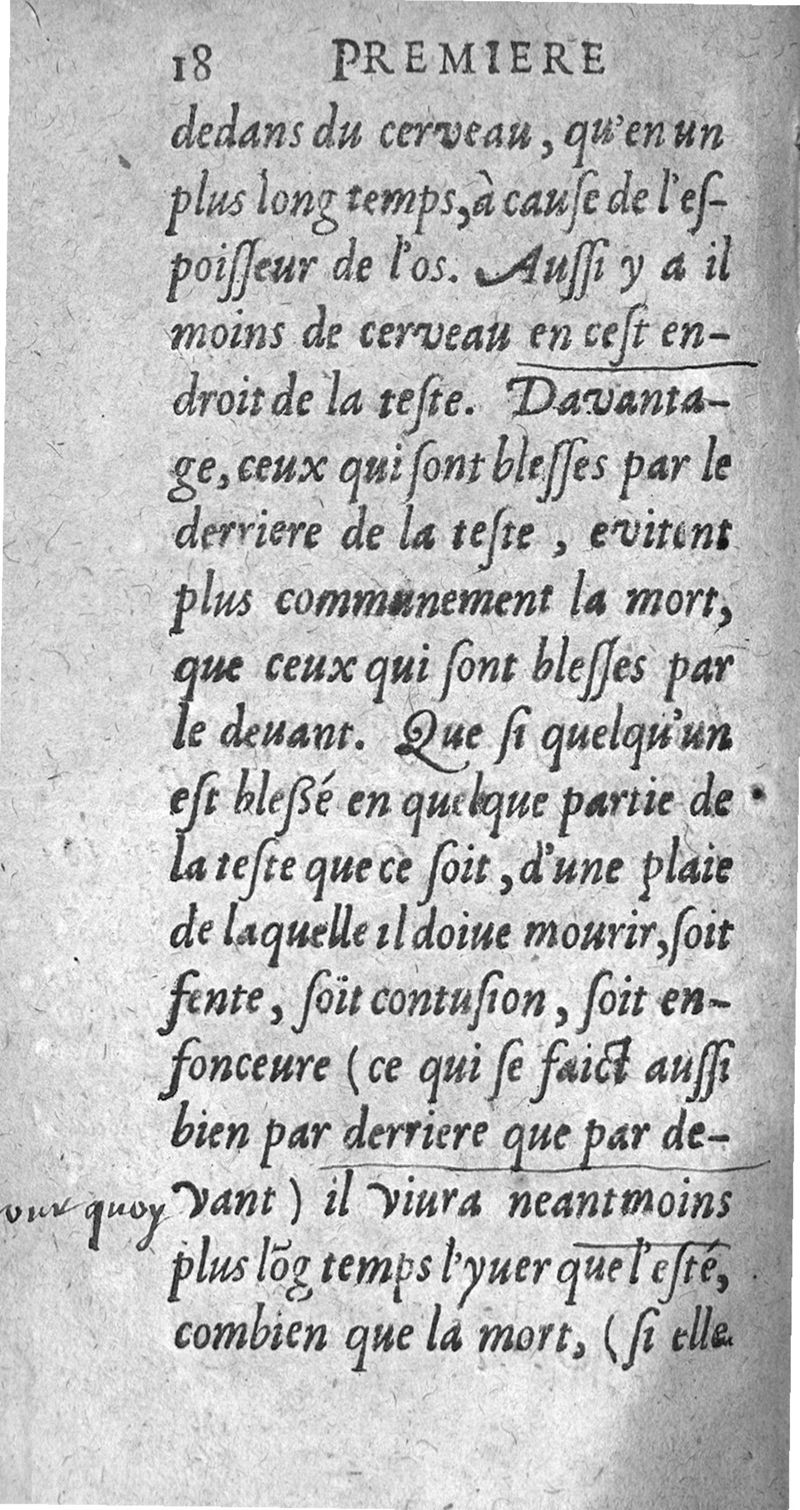 18 PREMIERE
dedans du cerveau, qu'en un
plus long temps, à cauſe de l'eſ-
poiſſeur de l'os. Auſſi y a il
moins de cerveau en ceſt en-
droit de la teſte. Davanta-
ge, ceux qui ſont bleſſes par le
derriere de la teſte, evitent
plus communement la mort,
que ceux qui ſont bleſſes par
le deuant. Que ſi quelqu'un
eſt bleßé en quelque partie de
la teſte que ce ſoit, d'une plaie
de laquelle il doiue mourir, ſoit
fente, ſoit contuſion, ſoit en-
fonceure (ce qui ſe faict auſſi
bien par derriere que par de-
quoy vant) il viura neantmoins
plus lõg temps l'yuer que l'eſté,
combien que la mort, (ſi elle